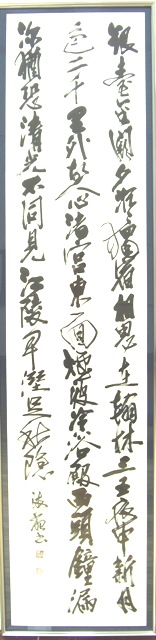 銀臺金闕夕沈沈獨宿相思在翰林三五夜中新月
色二千里外故人心渚宮東面煙波冷浴殿西頭鐘漏
深猶恐清光不同見江陵卑湿足秋陰